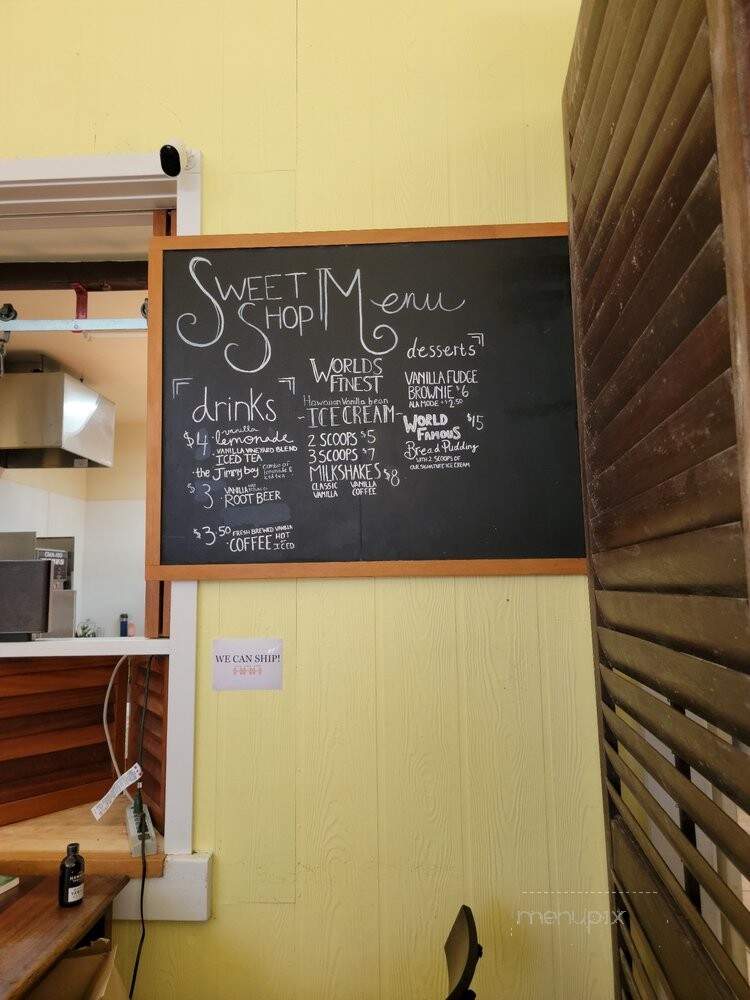 SWEET SHOP Menu
drinks
$4 · vanilla lemonade
VANILLA VINEYARD BLEND
ICED TEA
· the Jimmy boy combo of
lemonade &
iced tea
$3 VANILLA
· ROOT BEER
$3.50 FRESH BREWED VANILLA
· COFFEE HOT
ICED
WORLDS
FINEST
Hawaiian Vanilla bean
- ICE CREAM -
2 SCOOPS $5
3 SCOOPS $7
MILKSHAKES $8
CLASSIC VANILLA
VANILLA COFFEE
desserts
VANILLA FUDGE
BROWNIE $6
ALA MODE +$2.50
WORLD FAMOUS $15
Bread Pudding
WITH 2 SCOOPS OF
OUR SIGNATURE ICE CREAM
WE CAN SHIP!
menupix